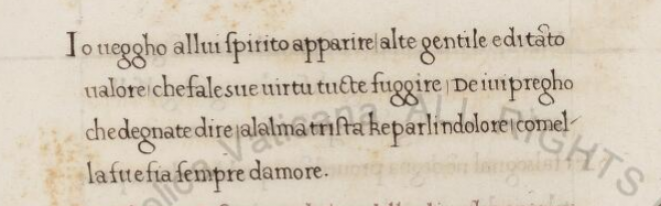 Io ueggho allui spirito apparire|alte gentile editãto
ualore|chefalesue uirtu tucte fuggire|Deiuipregho
chedegnate dire|alalma trista keparlindolore|comel-
lafu e fia sempre damore.
Vaticana ALL RIGHTS